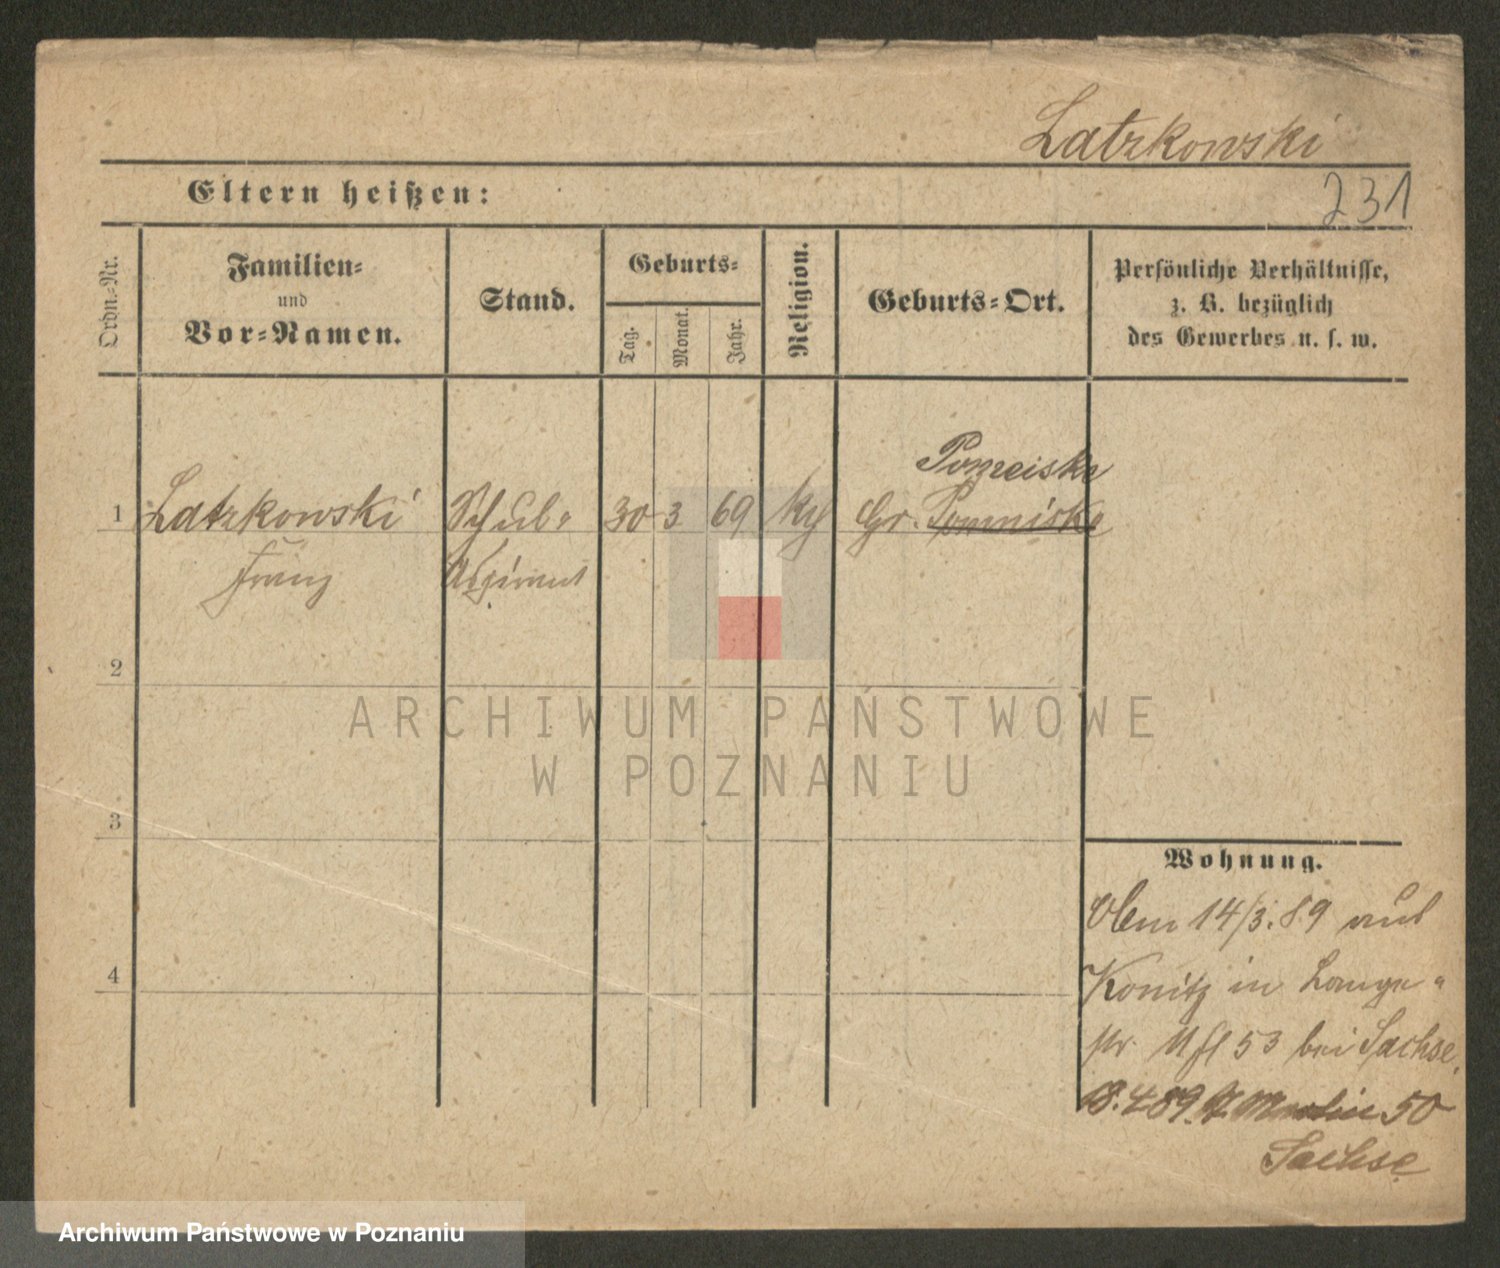 Latzkowski
Eltern heißen:
231
Ordn.-Nr.
Familien-
und
Vor-Namen.
Stand.
Geburts-
Tag.
Monat.
Jahr.
Religion.
Geburts-Ort.
Persönliche Verhältnisse,
z. B. bezüglich
des Gewerbes u. s. w.
Pomeiske
1 Latzkowski Schul- 30 3 69 Gr. Pomniske
Franz Aspirant
2
3
4
Wohnung.
14/3.89 aus
Konitz in Lange-
str. 53 bei Sachse
50
Sachse
ARCHIWUM PAŃSTWOWE
W POZNANIU
Archiwum Państwowe w Poznaniu